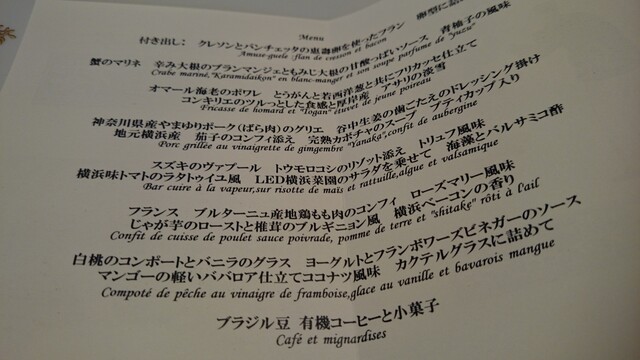 Menu
付き出し： クレソンとパンチェッタの恵壽卵を使ったフラン 卵型に詰
Amuse-guele :flan de cresson et bacon
蟹のマリネ 辛み大根のブランマンジェともみじ大根の甘酸っぱいソース 青柚子の風味
Crabe mariné,"Karamidaikon" en blanc-manger et son soupe parfume de "yuzu"
オマール海老のポワレ とうがんと若西洋葱と共にフリカッセ仕立て
コンキリエのツルっとした食感と厚岸産 アサリの淡雪
Fricasse de homard et "Togan" étuvet de jeune poireau
神奈川県産やまゆりポーク(ばら肉)のグリエ 谷中生姜の歯ごたえのドレッシング掛け
地元横浜産 茄子のコンフィ添え 完熟カボチャのスープ プティカップ入り
Porc grillée au vinaigrette de gimgembre "Yanaka",confit de aubergine
スズキのヴァプール トウモロコシのリゾット添え トリュフ風味
横浜味トマトのラタトゥイユ風 LED横浜菜園のサラダを乗せて 海藻とバルサミコ酢
Bar cuire à la vapeur,sur risotte de maïs et rattuille,algue et valsamique
フランス ブルターニュ産地鶏もも肉のコンフィ ローズマリー風味
じゃが芋のローストと椎茸のブルギニョン風 横浜ベーコンの香り
Confit de cuisse de poulet sauce poivrade, pomme de terre et "shitake" rôti à l'ail
白桃のコンポートとバニラのグラス ヨーグルトとフランボワーズビネガーのソース
マンゴーの軽いババロア仕立てココナツ風味 カクテルグラスに詰めて
Compoté de pêche au vinaigre de framboise,glace au vanille et bavarois mangue
ブラジル豆 有機コーヒーと小菓子
Café et mignardises